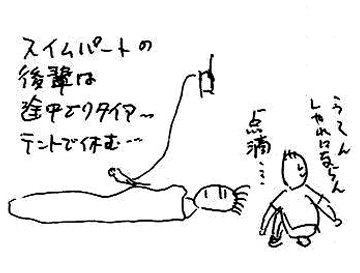 スイムパートの
後輩は
途中でリタイア〜
テントで休む…
点滴…
うーん
しゃれにならん